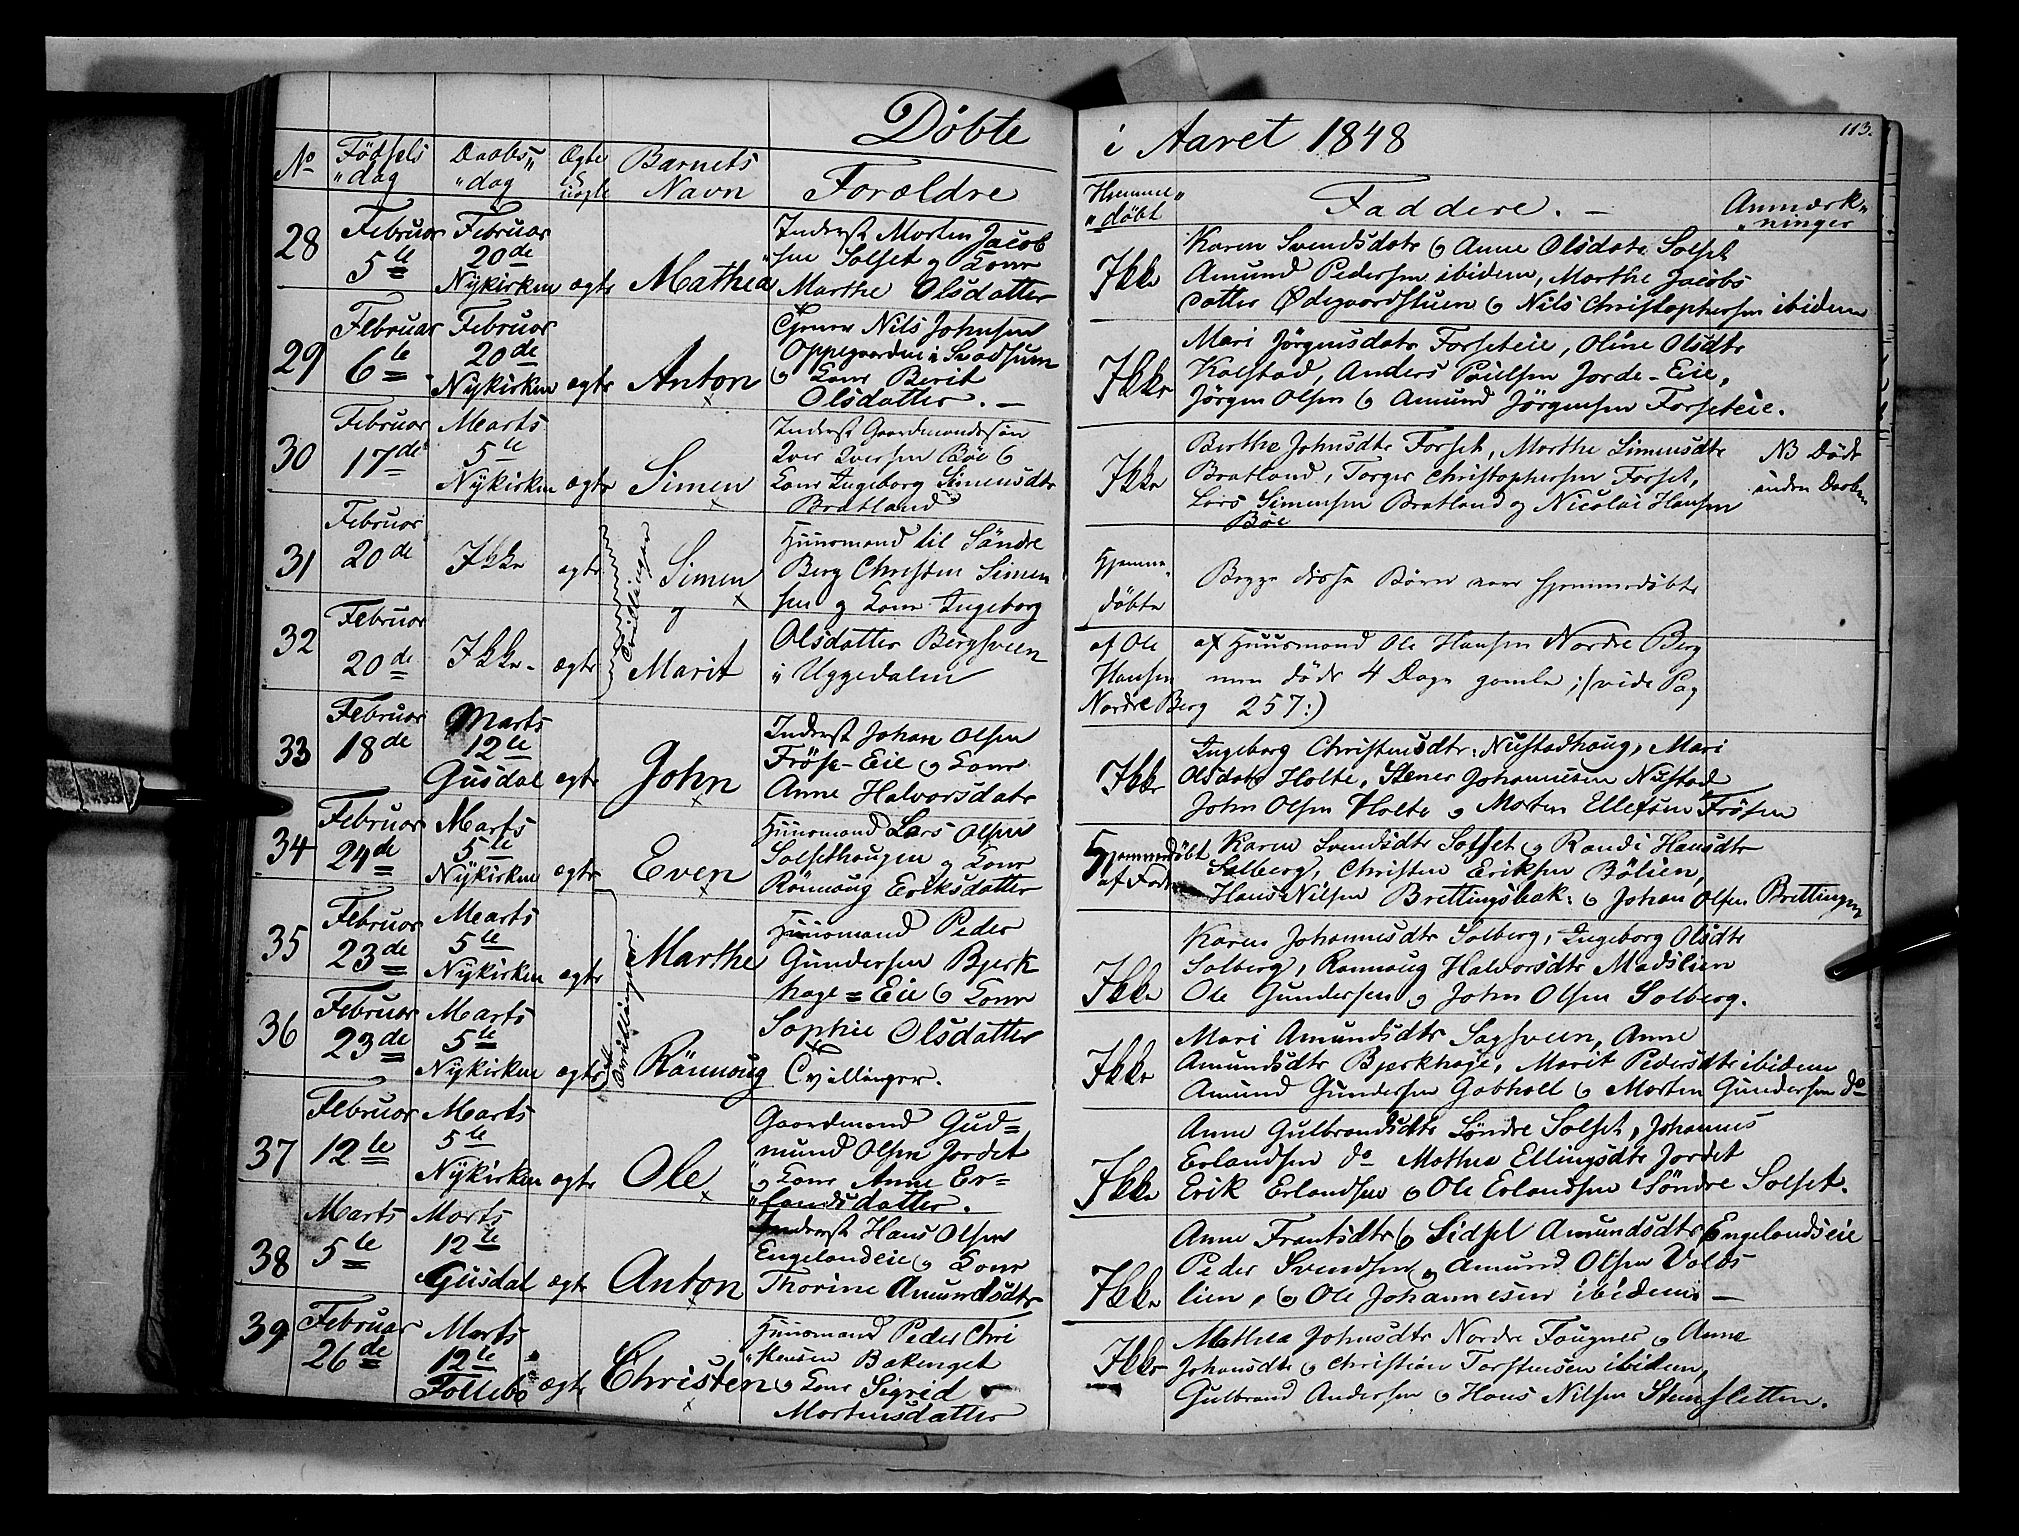 Døbte i Aaret 1848
113.
No Fødsels dag Daabs dag Ægte uægte Barnets Navn Forældre Hjemme døbt Faddere. Anmærkninger
28 Februar 5te Februar 20de Nykirken ægte Mathea
Inderst Morten Jacob
sen Solset og Kone
Marthe Olsdatter
Ikke
Karen Svendsdatr Anne Olsdatr Solset
Amund Pedersen ibidem, Marthe Jacobs
datter Ødegaardstuen Nils Christophersen ibidem
29 Februar 6te Februar 20de Nykirken ægte Anton
Nils Johnsen
Oppegaarden i Svadsum
Kone Berit
Olsdatter. —
Ikke
Mari Jörgensdatr Forseteie, Oline Olsdtr
Kolstad, Anders Poulsen Jorde-Eie,
Jörgen Olsen Amund Jörgensen Forseteie.
30 Februar 17de Marts 5te Nykirken ægte Simen
Inderst Gaardmandssön
Iver Iversen Böe
Kone Ingeborg Simensdtr
Bratland
Ikke
Berthe Johnsdtr Forset, Marthe Simensdtr
Bratland, Torger Christophersen Forset,
Lars Simensen Bratland og Nicolai Hansen
Böe
NB Döde
inden Daaben
31 Februar 20de Ikke ægte Simen
Tvillinger
og
Huusmand til Söndre
Berg Christen Simen
sen og Kone Ingeborg
Hjemme
döbte
Begge disse Börn hjemmedöbte
32 Februar 20de Ikke ægte Marit
Olsdatter Bergsveen
i Uggedalen
af Ole
Hansen
Nordre Berg
af Huusmand Ole Hansen Nordre Berg
men döde 4 Dage gamle; (vide Pag
257:)
33 Februar 18de Marts 12te Gusdal ægte John
Inderst Johan Olsen
Fröse-Eie Kone
Anne Halvorsdatr
Ikke
Ingeborg Christensdtr Nustadhaug, Mari
Olsdatr Holte, Stener Johannesen Nustad
John Olsen Holte og Morten Ellefsen Frösen
34 Februar 24de Marts 5te Nykirken ægte Even
Huusmand Lars Olsen
Solsethaugen og Kone
Rönnoug Eriksdatter
Hjemmedöbt
af
Karen Svendsdtr Solset Randi Hansdtr
Solberg, Christen Eriksen Bölien,
Hans Nilsen Brettingsbak: Johan Olsen Brettingen
35 Februar 23de Marts 5te Nykirken ægte Marthe
Tvillinger
Huusmand Peder
Gundersen Bjerk
hage=Eie Kone
Ikke
Karen Johannesdtr Solberg, Ingeborg Olsdtr
Solberg, Rannoug Halvorsdtr Madslien
Ole Gundersen og John Olsen Solberg.
36 Februar 23de Marts 5te Nykirken ægte Rönnoug
Sophie Olsdatter
Tvillinger.
Ikke
Mari Amundsdtr Sagsveen, Anne
Amundsdtr Bjerkhage, Marit Pedersdtr ibidem
Amund Gundersen Gobholt Morten Gundersen do
37 Februar 12te Marts 5te Nykirken ægte Ole
Gaardmand Gud=
mund Olsen Jordet
og Kone Anne Er=
landsdatter.
Ikke
Anne Gulbrandsdtr Söndre Solset, Johannes
Erlandsen do Mathea Ellingsdtr Jordet
Erik Erlandsen Ole Erlandsen Söndre Solset.
38 Marts 5te Marts 12te Gusdal ægte Anton
Inderst Hans Olsen
Engelandeie og Kone
Thorine Amundsdtr
Ikke
Anne Frantsdtr Sidsel Amundsdtr Engelandseie
Peder Svendsen og Amund Olsen Volds
lien, Ole Johannesen ibidem —
39 Februar 26de Marts 12te Follebo ægte Christen
Huusmand Peder Chri
stensen Bakenget
Kone Sigrid
Mortensdatter
Ikke
Mathea Johnsdtr Nordre Fougner Anne
Johansdtr Christian Torstensen ibidem,
Gulbrand Andersen Hans Nilsen Stensletten.